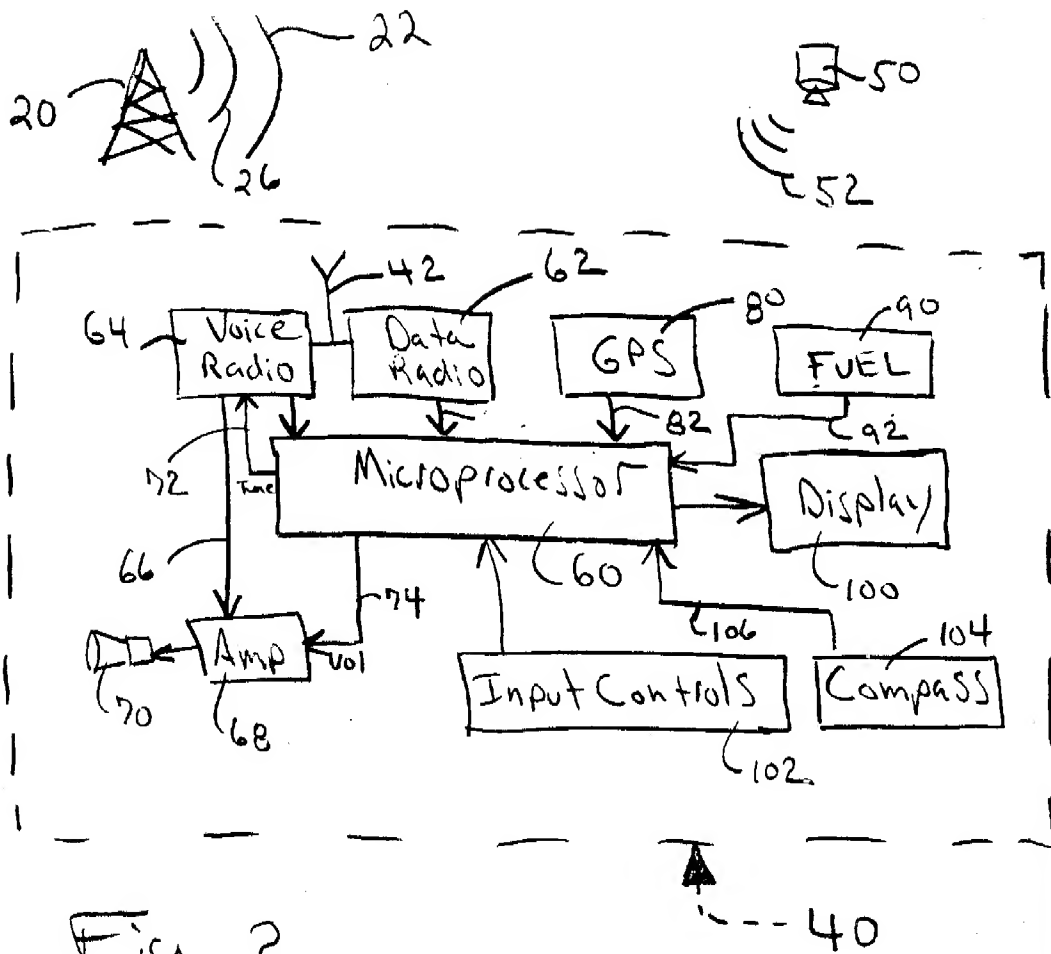 22
20
50
26
52
42
62
80
90
64
Voice
Radio
Data
Radio
GPS
FUEL
82
92
72
Tune
Microprocessor
Display
66
60
74
100
106
104
Amp
Vol
Input Controls
Compass
70
68
102
40